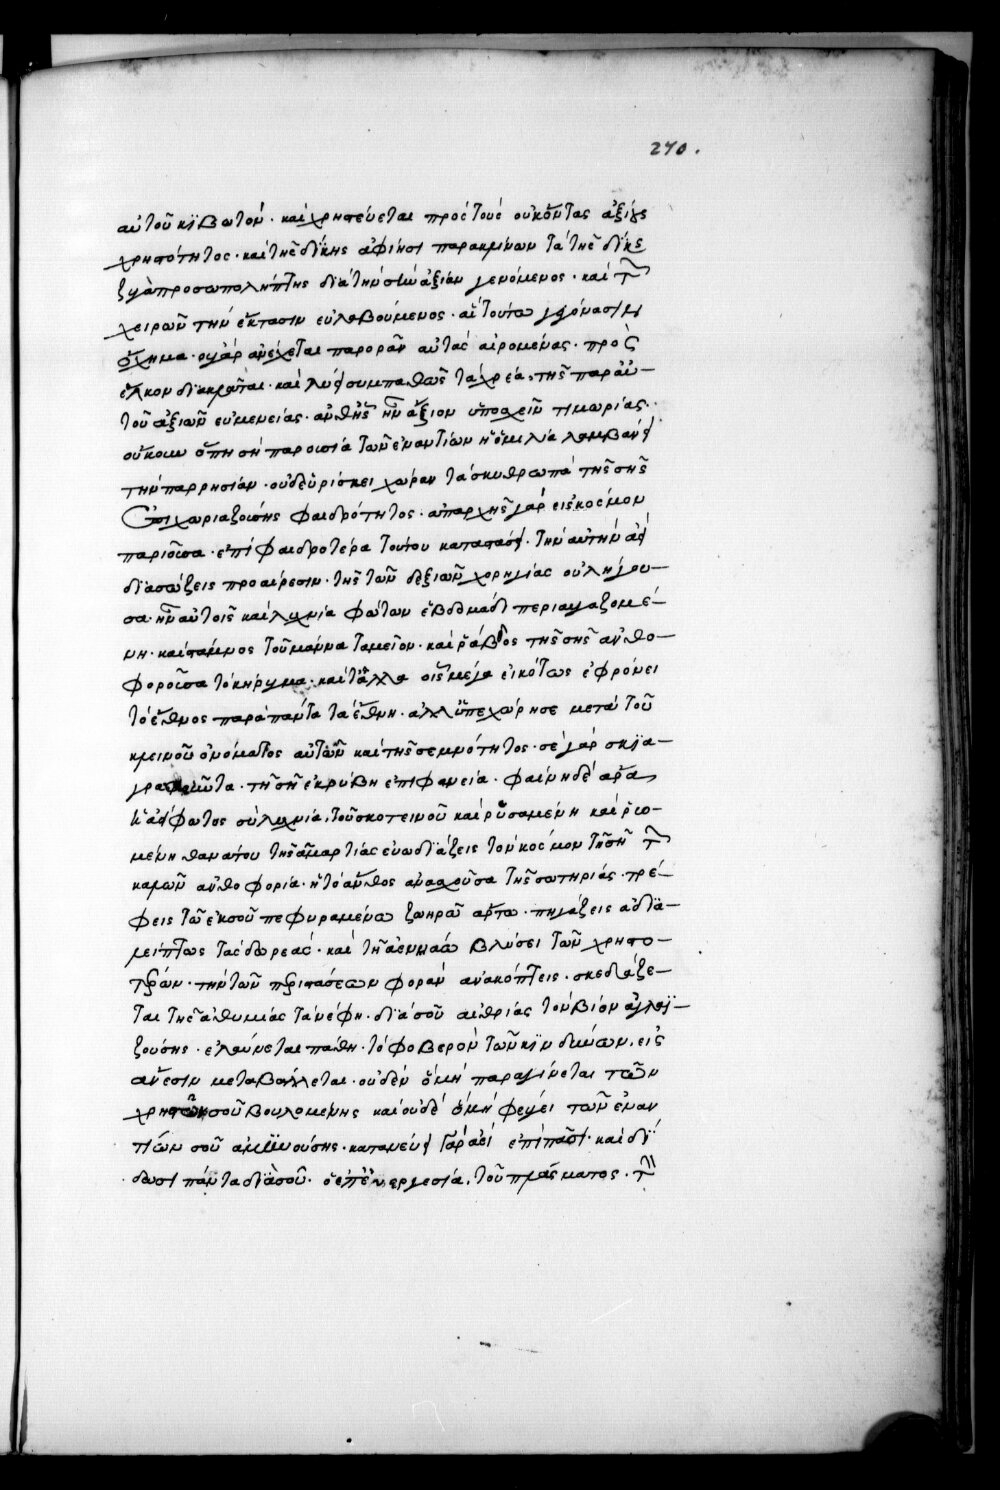 270.
αὐτοῦ κιβωτόν· καὶ χρηστεύεται πρὸς τοὺς οὐκ ὄντας ἀξίους
χρηστότητος· καὶ τῆς δίκης ἀφίησι παρακρίνων τὰ τῆς δίκης
ζυγὰ προσωπολήπτης διὰ τὴν σὴν ἀξίαν γενόμενος· καὶ τῶν
χειρῶν τὴν ἔκτασιν εὐλαβούμενος· αἳ τούτω γεγόνασιν
ὄχημα· οὐ γὰρ ἀνέχεται παρορᾶν αὐτὰς αἰρομένας· πρὸς
ἕλκον διακρᾶται· καὶ λύει συμπαθῶς τὰ χρέα, τῆς παρ' αὐ-
τοῦ ἀξιῶν εὐμενείας· ἀνθ' ἧς ἦν ἄξιον ὑποσχεῖν τιμωρίας·
οὔκουν ὅπη σὴ παρουσία τῶν ἐναντίων ἡ ὁμιλία λαμβάνει
τὴν παρρησίαν· οὐδ' εὑρίσκει χώραν τὰ σκυθρωπὰ τῆς σῆς
ἐπιχωριαζούσης φαιδρότητος· ἀπαρχῆς γὰρ εἰς κόσμον
παριοῦσα· ἐπὶ φαιδροτέρα τούτου καταστάσει· τὴν αὐτὴν ἀεὶ
διασώζεις προαίρεσιν· τῆς τῶν δεξιῶν χορηγίας οὐ λήγου-
σα· ἦν αὐτοῖς καὶ λυχνία φώτων ἑβδομάδι περιαυγαζομέ-
νη· καὶ στάμνος τοῦ μάννα ταμεῖον· καὶ ῥάβδος τῆς σῆς ἀνθο-
φοροῦσα τὸ κήρυγμα· καὶ τἄλλα οἷς μέγα εἰκότως ἐφρόνει
τὸ ἔθνος παρὰ πάντα τὰ ἔθνη· ἀλλ' ὑπεχώρησε μετὰ τοῦ
κλεινοῦ ὀνόματος αὐτῶν καὶ τῆς σεμνότητος· σὲ γὰρ σκια-
γραφοῦντα· τῇ σῇ ἐκρύβη ἐπιφανεία· φαίνῃ δὲ ἄρα
φωτὸς σὺ λυχνία, τοῦ σκοτεινοῦ καὶ ῥυσαμένη καὶ ῥυο-
μένη θανάτου τῆς ἁμαρτίας εὐωδιάζεις τὸν κόσμον τῇ σῇ τῶν
καλῶν ἀνθοφορία· ἡ τὸ ἄνθος ἀνασχοῦσα τῆς σωτηρίας· τρέ-
φεις τῶ ἐκ σοῦ πεφυραμένω ζωηρῶ ἄρτω· πηγάζεις ἀδια-
λείπτως τὰς δωρεάς· καὶ τῇ ἀεννάω βλύσει τῶν χρηστο-
τέρων· τὴν τῶν περιστάσεων φορὰν ἀνακόπτεις· σκεδάζε-
ται τῆς ἀθυμίας τὰ νέφη· διὰ σοῦ αἰθρίας τὸν βίον ἀγλαϊ-
ζούσης· ἐλαύνεται πάθη· τὸ φοβερὸν τῶν κινδύνων, εἰς
ἄνεσιν μεταβάλλεται· οὐδὲν ὃ μὴ παραγίνεται τῶν
χρηστῶν σοῦ βουλομένης καὶ οὐδὲ ὃ μὴ φεύγει τῶν ἐναν
τίων σοῦ ἀμυνούσης· κατανεύει γὰρ ἀεὶ ἐπὶ πᾶσι· καὶ δί
δωσι πάντα διὰ σοῦ· ὁ ἐπ' εὐεργεσία, τοῦ πλάσματος· τὴν